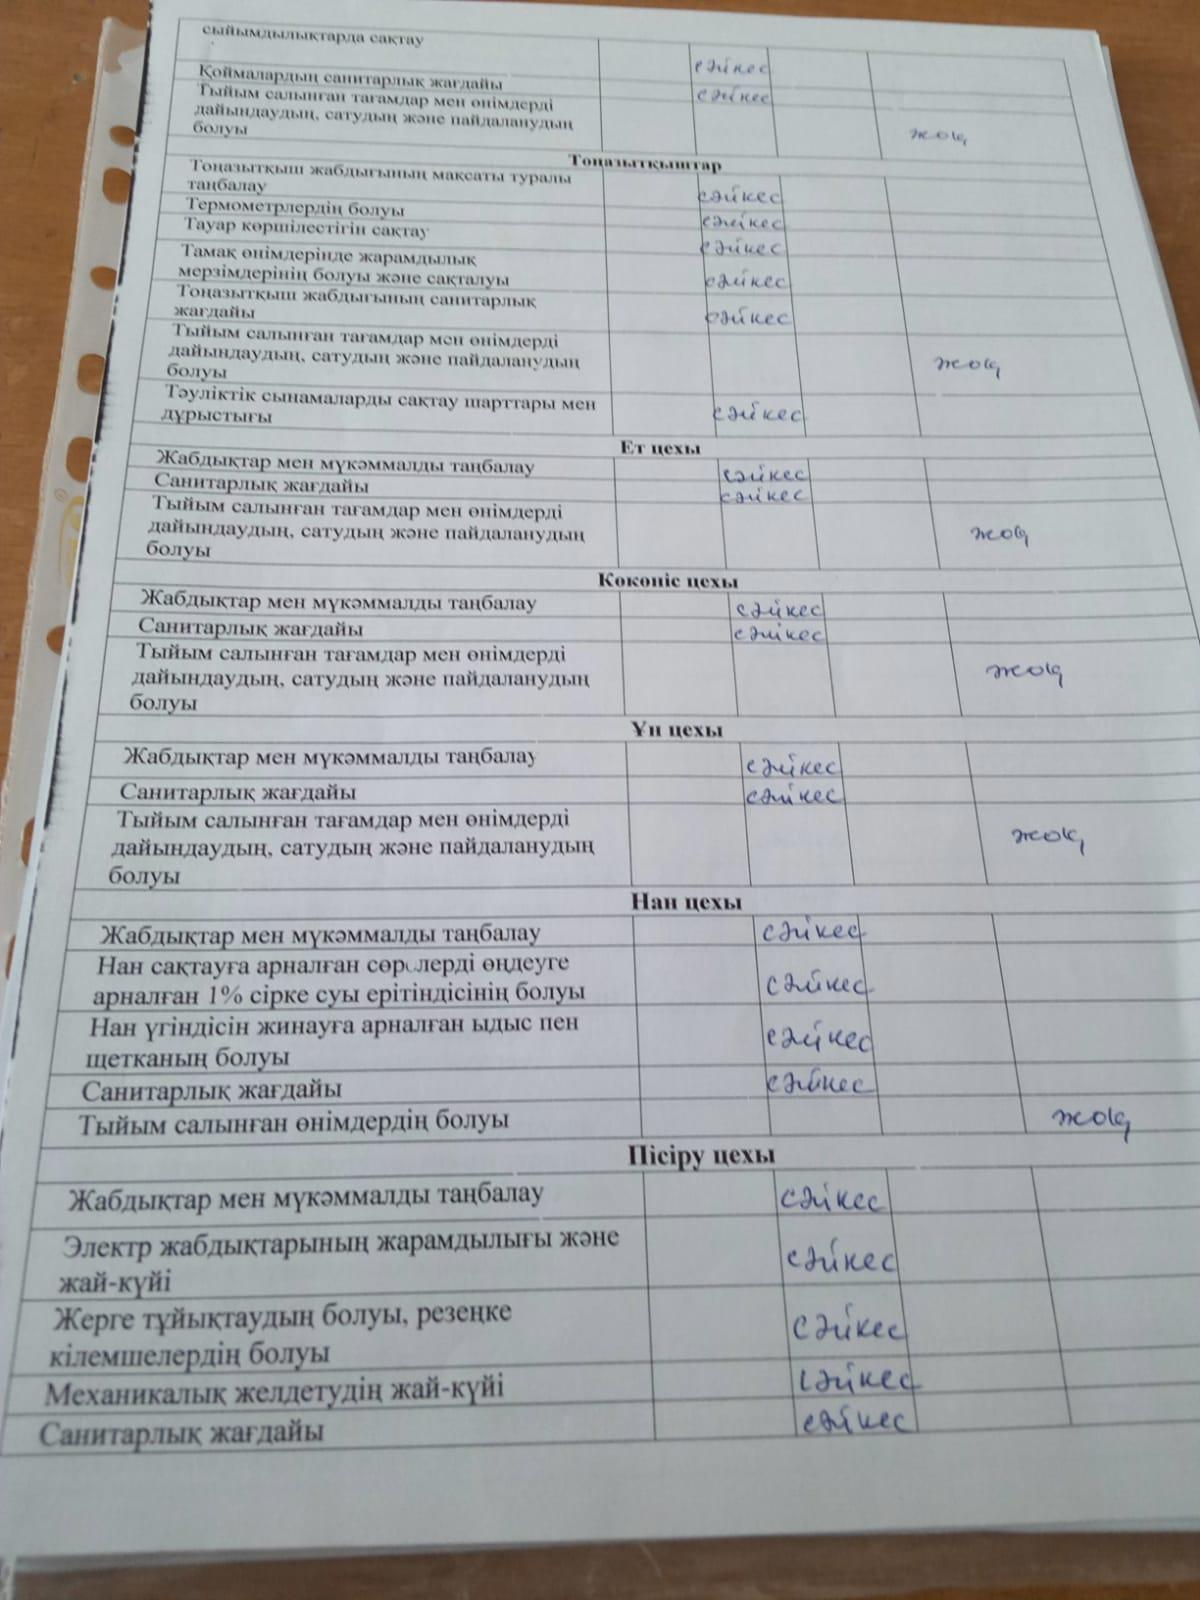 сыйымдылықтарда сақтау сәйкес
Қоймалардың санитарлық жағдайы сәйкес
Тыйым салынған тағамдар мен өнімдерді
дайындаудың, сатудың және пайдаланудың
болуы жоқ
Тоңазытқыштар
Тоңазытқыш жабдығының мақсаты туралы
таңбалау сәйкес
Термометрлердің болуы сәйкес
Тауар көршілестігін сақтау сәйкес
Тамақ өнімдерінде жарамдылық
мерзімдерінің болуы және сақталуы сәйкес
Тоңазытқыш жабдығының санитарлық
жағдайы сәйкес
Тыйым салынған тағамдар мен өнімдерді
дайындаудың, сатудың және пайдаланудың жоқ
болуы
Тәуліктік сынамаларды сақтау шарттары мен
дұрыстығы сәйкес
Ет цехы
Жабдықтар мен мүкәммалды таңбалау сәйкес
Санитарлық жағдайы сәйкес
Тыйым салынған тағамдар мен өнімдерді
дайындаудың, сатудың және пайдаланудың жоқ
болуы
Көкөніс цехы
Жабдықтар мен мүкәммалды таңбалау сәйкес
Санитарлық жағдайы сәйкес
Тыйым салынған тағамдар мен өнімдерді
дайындаудың, сатудың және пайдаланудың жоқ
болуы
Ұн цехы
Жабдықтар мен мүкәммалды таңбалау сәйкес
Санитарлық жағдайы сәйкес
Тыйым салынған тағамдар мен өнімдерді
дайындаудың, сатудың және пайдаланудың жоқ
болуы
Нан цехы
Жабдықтар мен мүкәммалды таңбалау сәйкес
Нан сақтауға арналған сөрелерді өңдеуге
арналған 1% сірке суы ерітіндісінің болуы сәйкес
Нан үгіндісін жинауға арналған ыдыс пен
щетканың болуы сәйкес
Санитарлық жағдайы сәйкес
Тыйым салынған өнімдердің болуы жоқ
Пісіру цехы
Жабдықтар мен мүкәммалды таңбалау сәйкес
Электр жабдықтарының жарамдылығы және
жай-күйі сәйкес
Жерге тұйықтаудың болуы, резеңке
кілемшелердің болуы сәйкес
Механикалық желдетудің жай-күйі сәйкес
Санитарлық жағдайы сәйкес